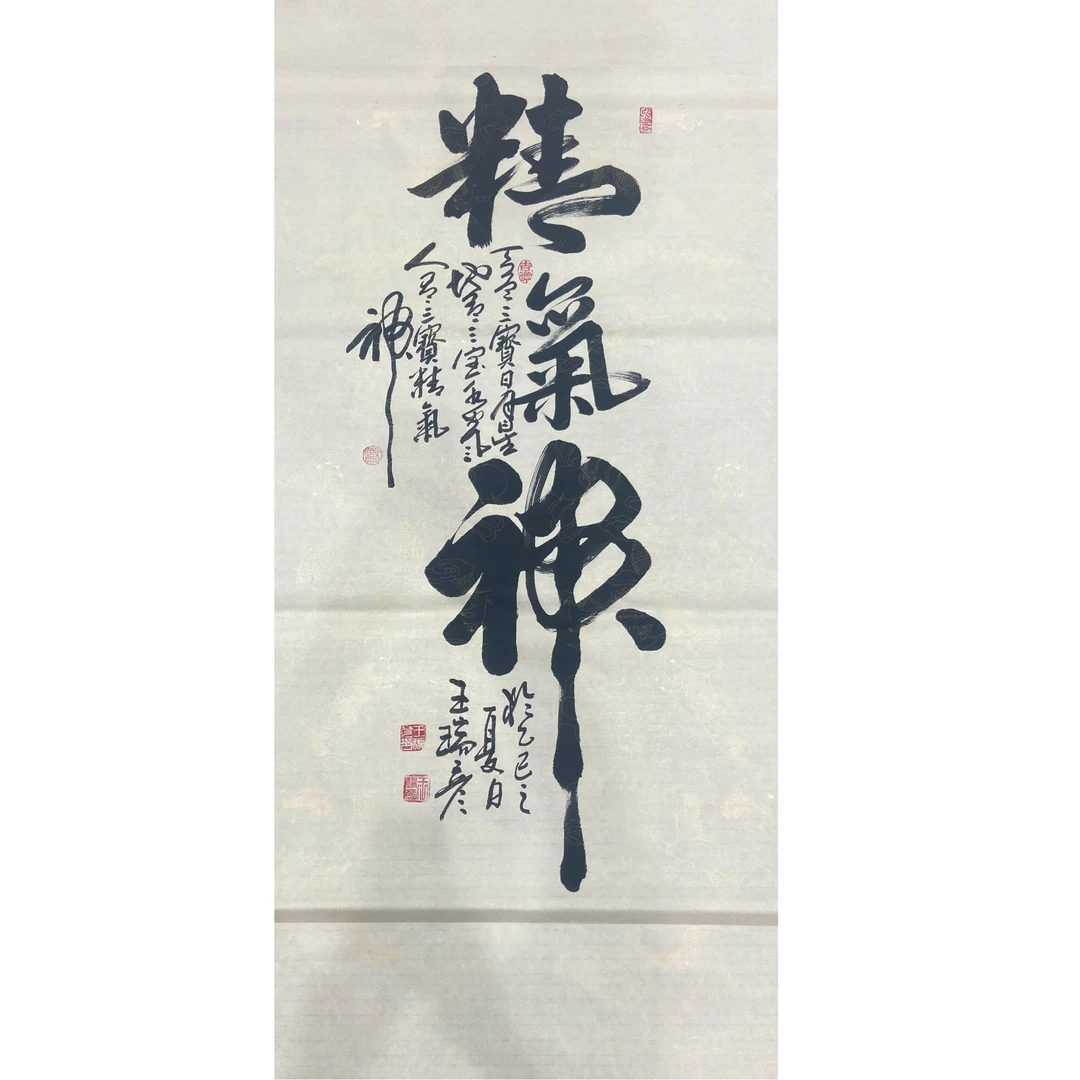 精氣神
天有三寶日月星
地有三宝水火風
人有三寶精氣
神
於乙巳之
夏日
王瑞彦